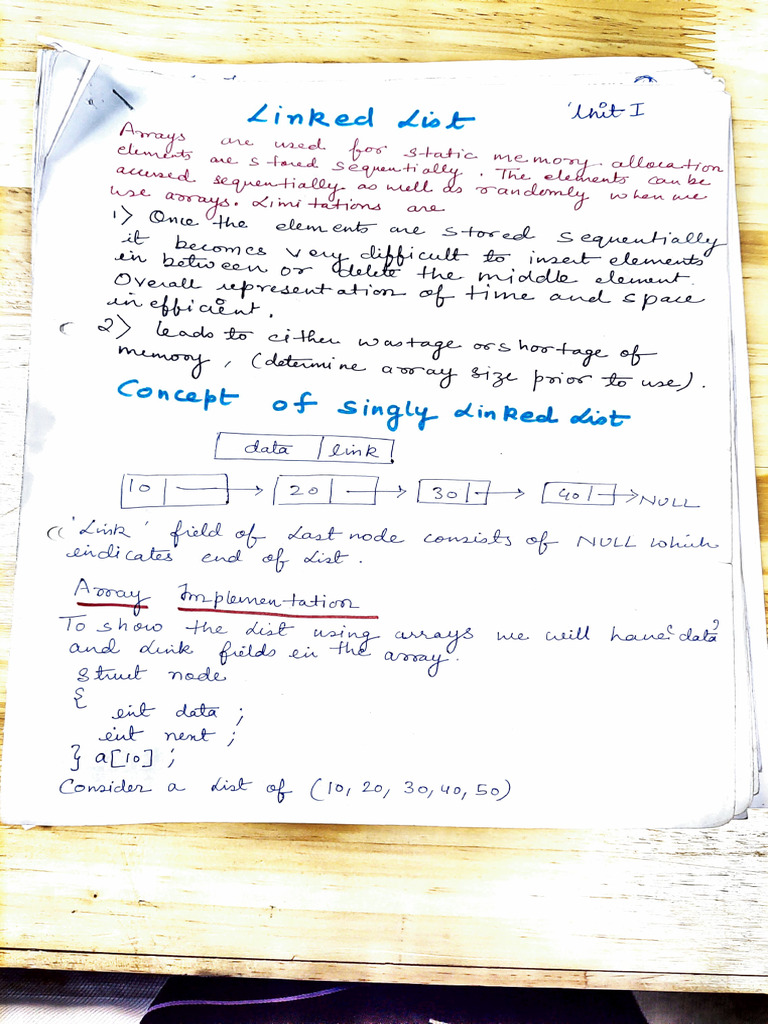 Linked List
Unit I
Arrays are used for static memory allocation
elements are stored sequentially. The elements can be
accused sequentially as well as randomly when we
use arrays. Limitations are
1) Once the elements are stored sequentially
it becomes very difficult to insert elements
in between or delete the middle element.
Overall representation of time and space
inefficient.
2) leads to either wastage or shortage of
memory, (determine array size prior to use).
Concept of Singly Linked List
data link
10 20 30 40 NULL
'Link' field of Last node consists of NULL which
indicates end of List.
Array Implementation
To show the List using arrays we will have 'data'
and Link fields in the array.
struct node
{
int data ;
int next ;
} a[10] ;
Consider a List of (10, 20, 30, 40, 50)